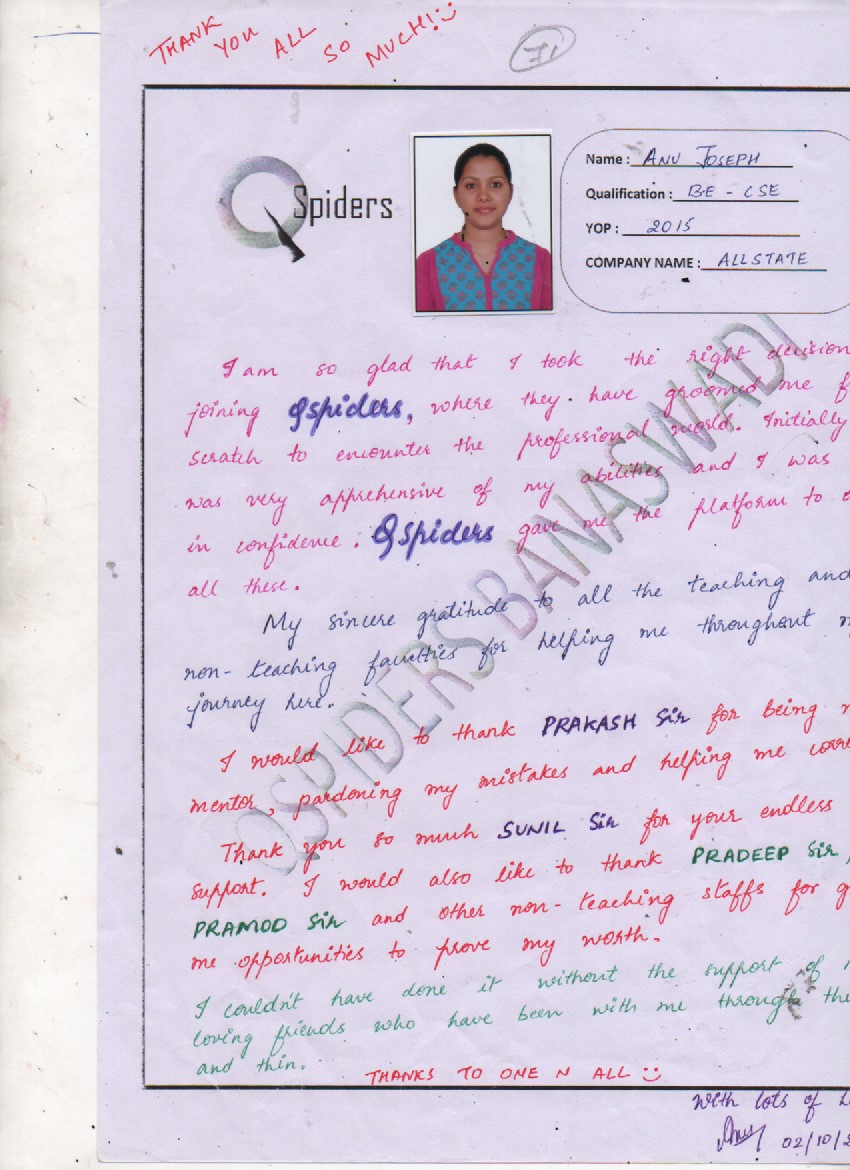 THANK YOU ALL SO MUCH! :)
71
Spiders
Name : ANU JOSEPH
Qualification : BE - CSE
YOP : 2015
COMPANY NAME : ALLSTATE
I am so glad that I took the right decision
joining Qspiders, where they have groomed me f
scratch to encounter the professional world. Initially
was very apprehensive of my abilities and I was
in confidence. Qspiders gave me the platform to
all these.
My sincere gratitude to all the teaching and
non-teaching faculties for helping me throughout
journey here.
I would like to thank PRAKASH Sir for being
mentor, pardoning my mistakes and helping me corre
Thank you so much SUNIL Sir for your endless
support. I would also like to thank PRADEEP Sir,
PRAMOD Sir and other non-teaching staffs for g
me opportunities to prove my worth.
I couldn't have done it without the support of
loving friends who have been with me through the
and thin.
THANKS TO ONE N ALL :)
With lots of L
Anu
02/10/2
QSPIDERS BANASWADI